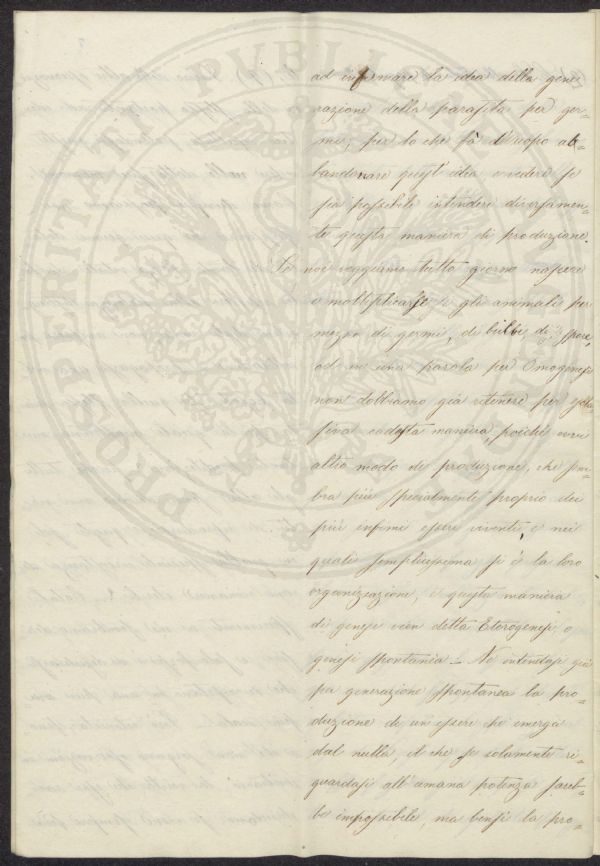 ad infirmare la idea della gene-
razione della parassita per ger-
mi; per lo che fà d'uopo ab-
bandonare quest'idea e vedere se
sia possibile intendere diversamen-
te questa maniera di produzione.
Se noi veggiamo tutto giorno nascere
e moltiplicarsi gli animali per
mezzo di germi, di bulbi, di spore,
ad una parola per Omogenesi
non dobbiamo già ritenere per esclu
siva codesta maniera, poichè avvi
altro modo di produzione, che sem-
bra più specialmente proprio dei
più infimi esseri viventi, e nei
quali semplicissima si è la loro
organizzazione, e questa maniera
di genesi vien detta Eterogenesi, o
genesi spontanea – Nè intendasi già
per generazione spontanea la pro-
duzione di un essere che emerga
dal nulla, il che se solamente ri-
guardasi all'umana potenza sareb-
be impossibile, ma bensì la pro-
PROSPERITATI PVBLICAE